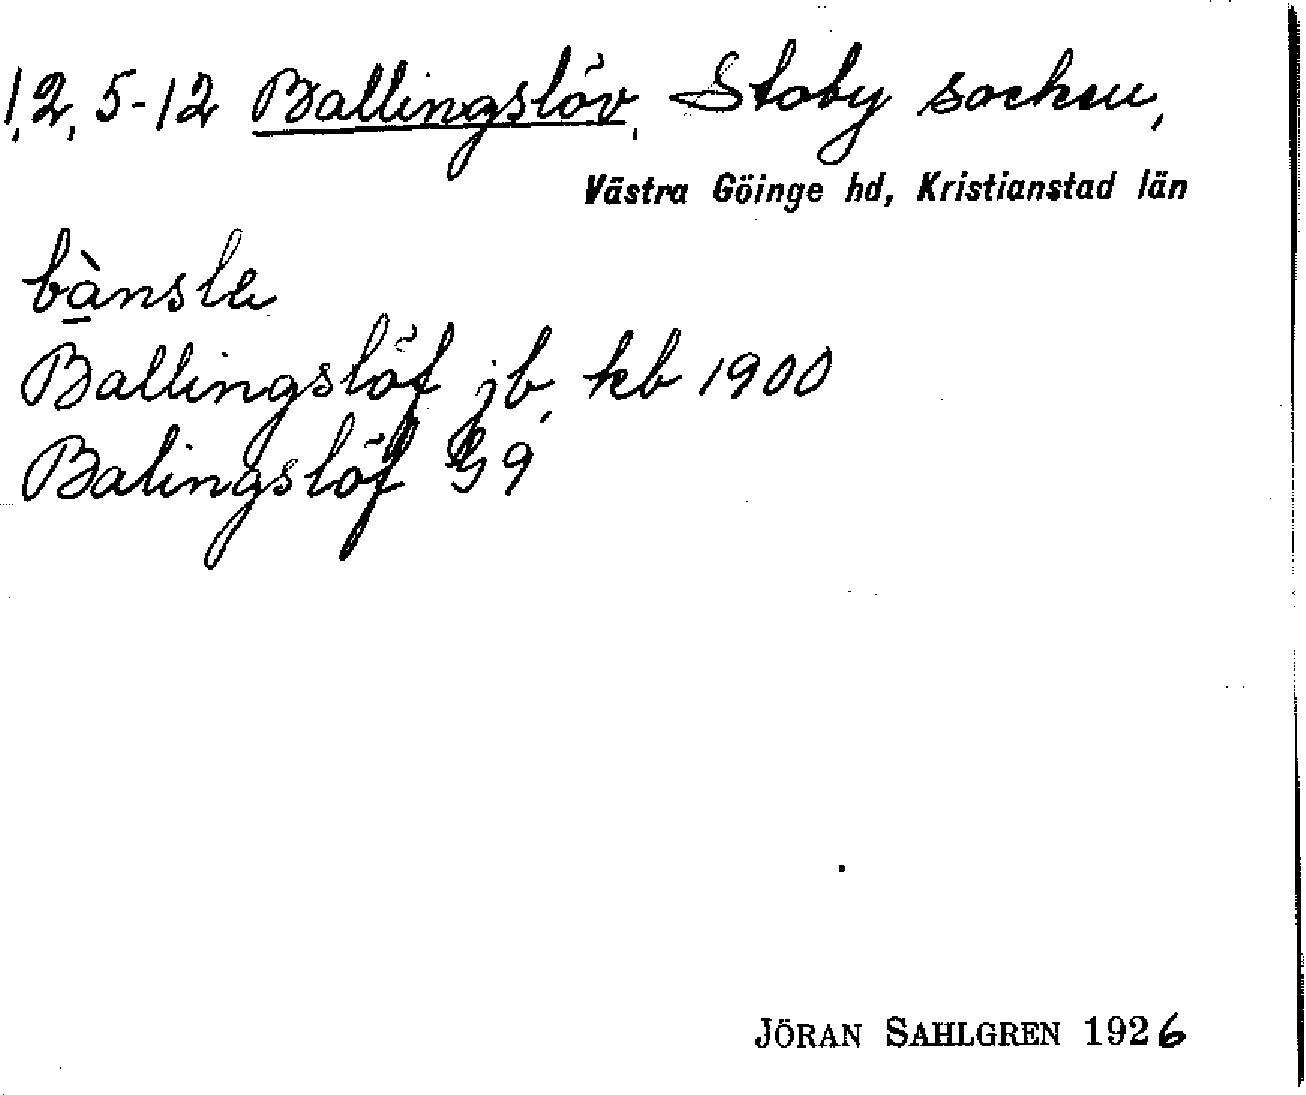 1, 2, 5-12 Ballingslöv, Stoby socken,
Västra Göinge hd, Kristianstad län
bànsle
Ballingslöf jb, kb 1900
Balingslöf 9
JÖRAN SAHLGREN 1926